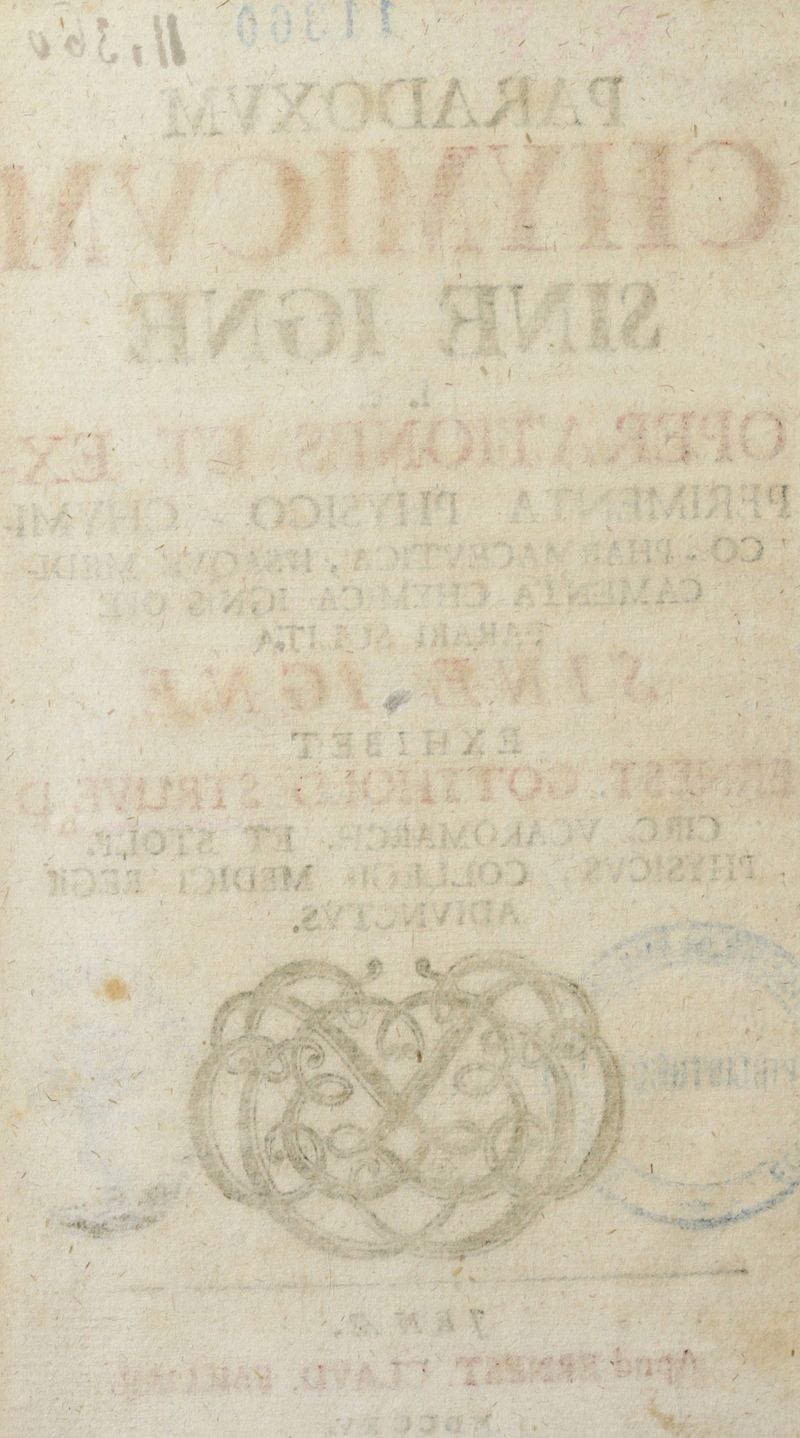 11360
11,360
PARADOXVM
CHYMICVM
SINE IGNE
i. e.
OPERATIONES ET EX-
PERIMENTA PHYSICO - CHYMI-
CO - PHARMACEVTICA, MEDI-
CAMENTA CHYMICA IGNIS OPE
PARARI SOLITA
SINE IGNE
EXHIBET
ERNEST. GOTTHOLD STRUVE D.
CIRC. VCAROMARCH. ET STOLP.
PHYSICVS, COLLEGII MEDICI REGII
ADIVNCTVS.
JENÆ.
Apud ERNEST. CLAVD.